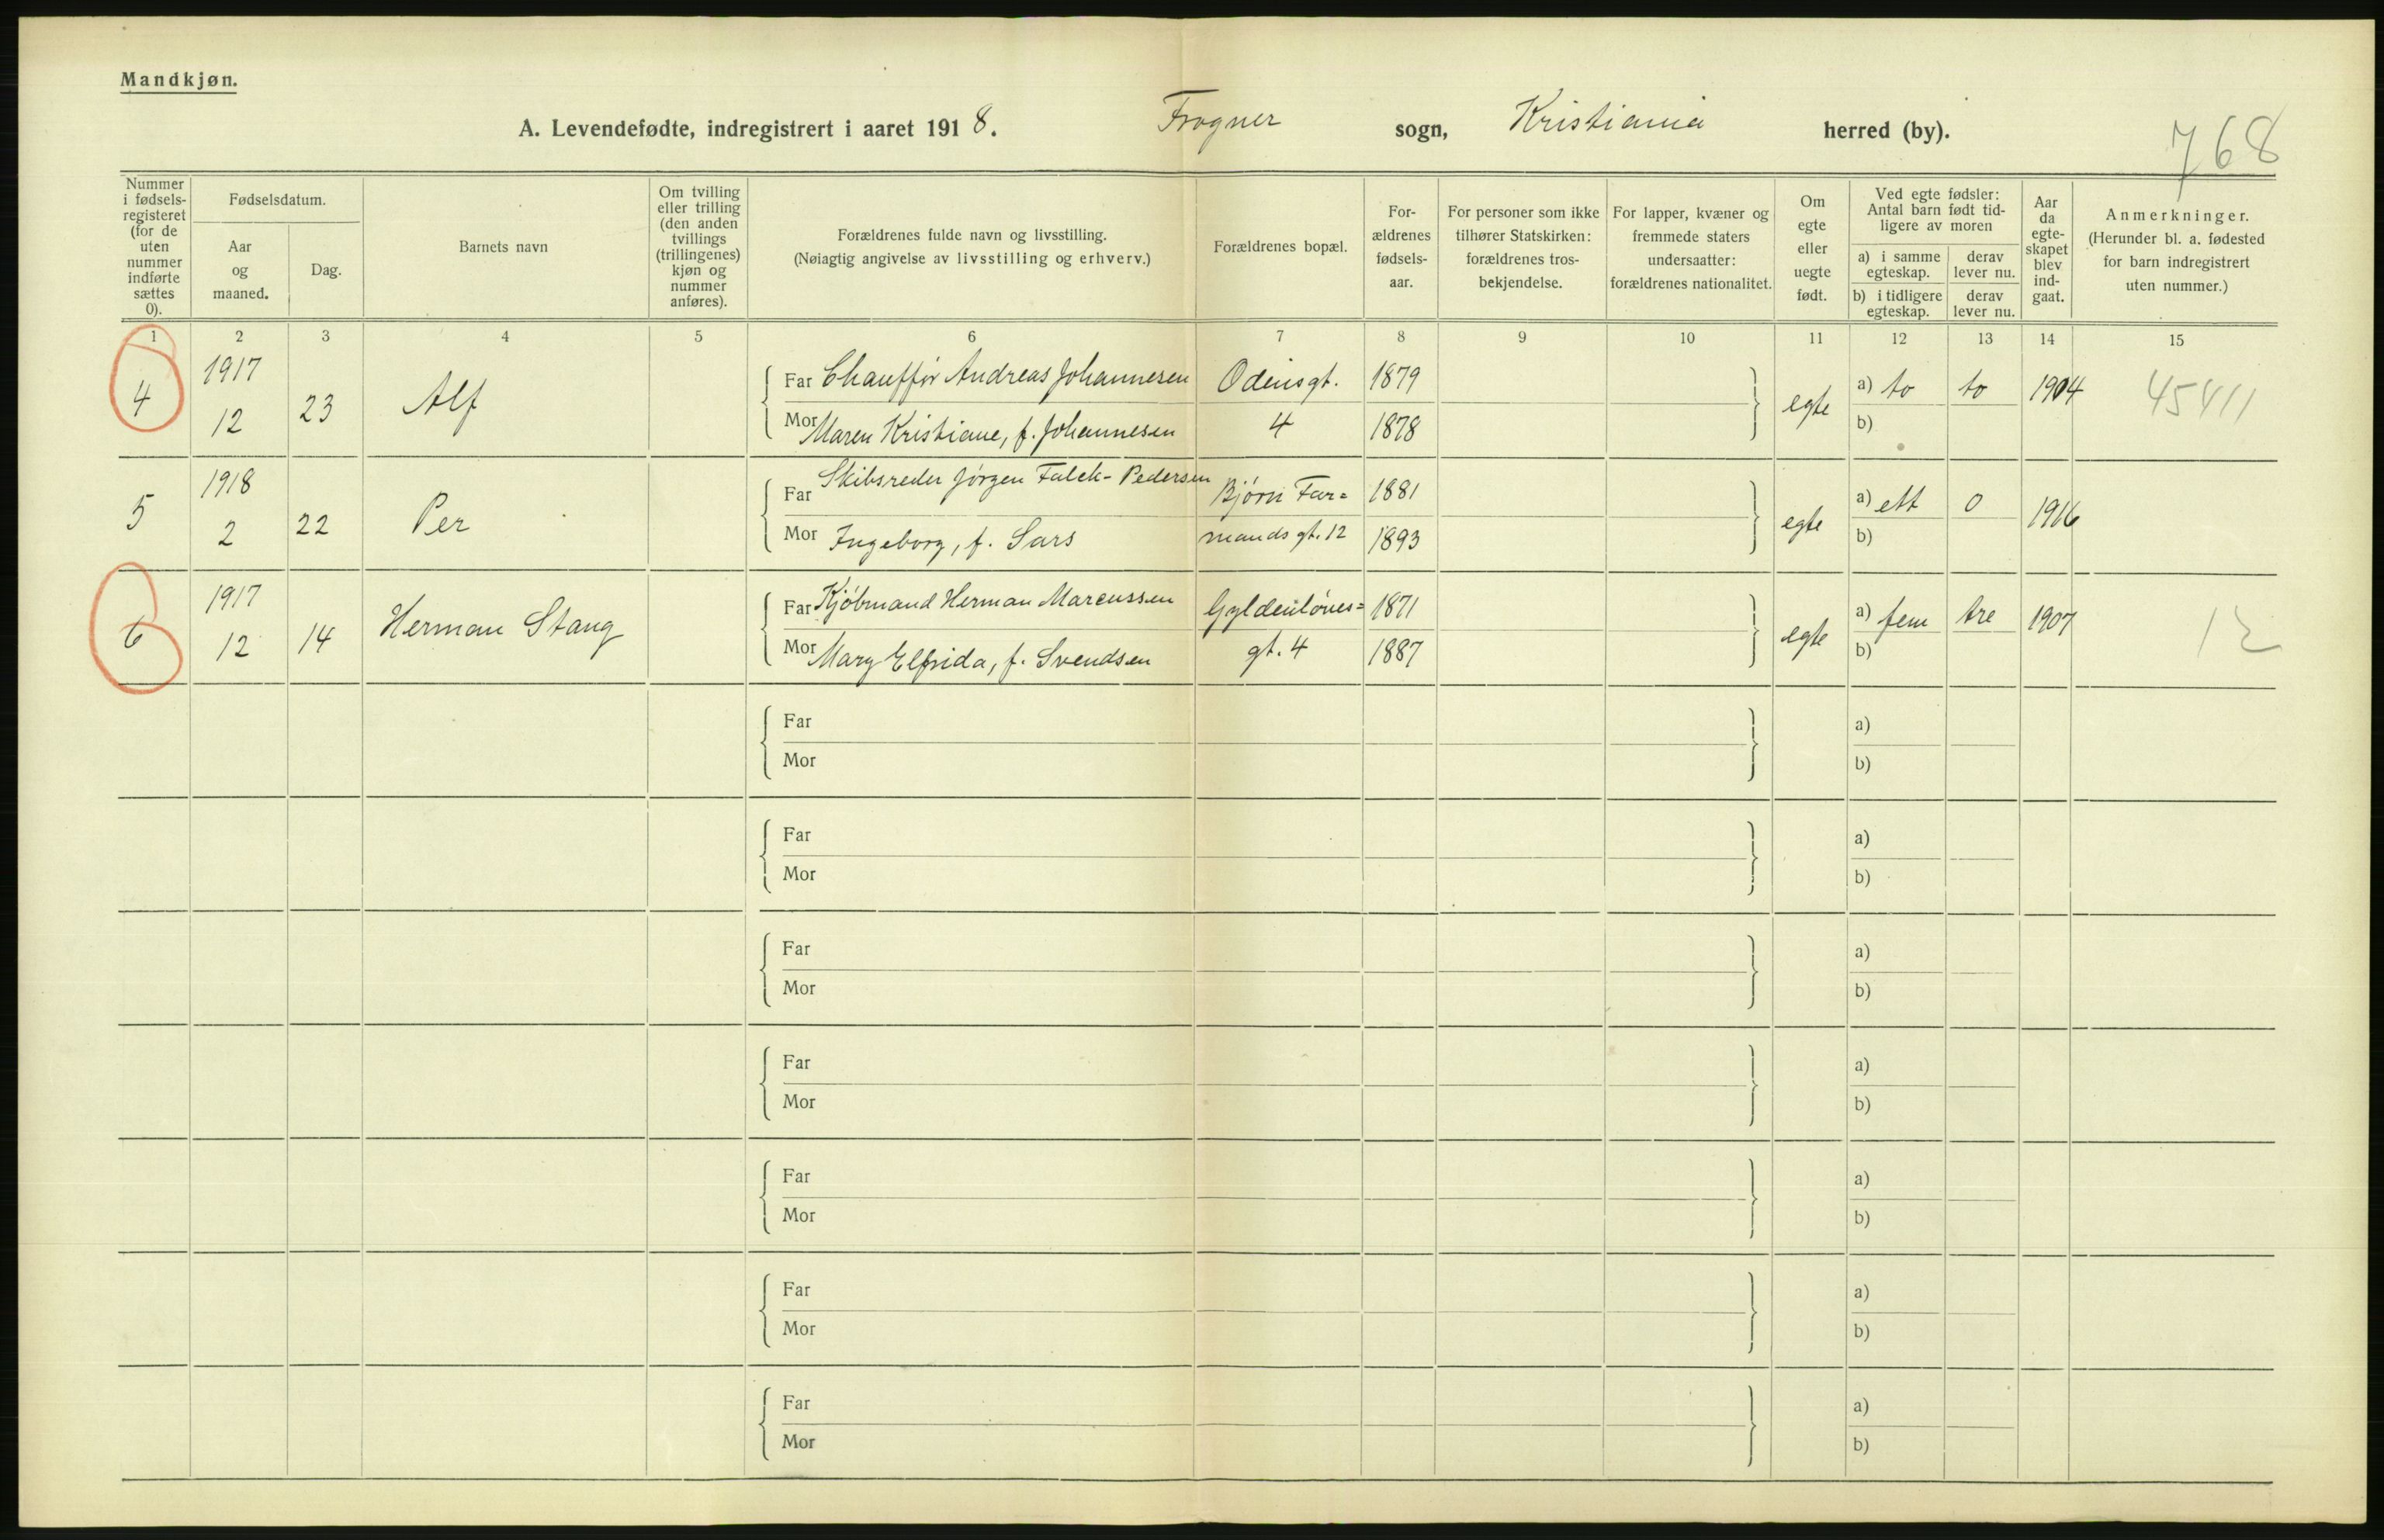 Mandkjøn.
A. Levendefødte, indregistrert i aaret 1918. Frogner sogn, Kristiania herred (by). 768
Nummer i fødsels-registeret (for de uten nummer indførte sættes 0).
Fødselsdatum.
Aar og maaned.
Dag.
Barnets navn
Om tvilling eller trilling (den anden tvillings (trillingenes) kjøn og nummer anføres).
Forældrenes fulde navn og livsstilling.
(Nøiagtig angivelse av livsstilling og erhverv.)
Forældrenes bopæl.
For-ældrenes fødsels-aar.
For personer som ikke tilhører Statskirken: forældrenes tros-bekjendelse.
For lapper, kvæner og fremmede staters undersaatter: forældrenes nationalitet.
Om egte eller uegte født.
Ved egte fødsler: Antal barn født tid-ligere av moren
a) i samme egteskap.
derav lever nu.
b) i tidligere egteskap.
derav lever nu.
Aar da egte-skapet blev ind-gaat.
Anmerkninger.
(Herunder bl. a. fødested for barn indregistrert uten nummer.)
1 2 3 4 5 6 7 8 9 10 11 12 13 14 15
4 1917 12 23 Alf
Far Chauffør Andreas Johannesen Odensgt. 1879
Mor Maren Kristiane, f. Johannesen 4 1878
egte a) to to 1904 45411
b)
5 1918 2 22 Per
Far Skibsreder Jørgen Falck-Pedersen Bjørn Far= 1881
Mor Ingeborg, f. Sars mands gt. 12 1893
egte a) ett 0 1916
b)
6 1917 12 14 Herman Stang
Far Kjøbmand Herman Marcussen Gyldenløves= 1871
Mor Mary Elfrida, f. Svendsen gt. 4 1887
egte a) fem tre 1907 12
b)
Far a)
Mor b)
Far a)
Mor b)
Far a)
Mor b)
Far a)
Mor b)
Far a)
Mor b)
Far a)
Mor b)
Far a)
Mor b)